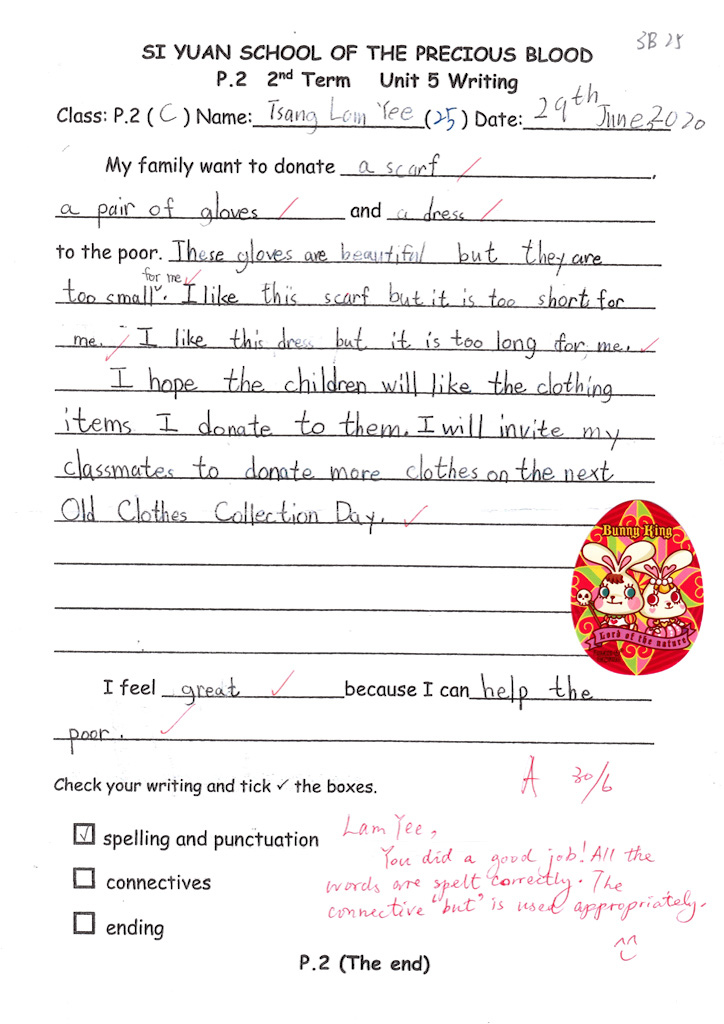 3B 25
SI YUAN SCHOOL OF THE PRECIOUS BLOOD
P.2 2nd Term Unit 5 Writing
Class: P.2 ( C ) Name: Tsang Lam Yee (25) Date: 29th June, 2020
My family want to donate a scarf ,
a pair of gloves and a dress
to the poor. These gloves are beautiful but they are
too small for me. I like this scarf but it is too short for
me. I like this dress but it is too long for me.
I hope the children will like the clothing
items I donate to them. I will invite my
classmates to donate more clothes on the next
Old Clothes Collection Day.
Bunny King
Lord of the nature
I feel great because I can help the
poor.
Check your writing and tick ✓ the boxes.
A 30/6
☑ spelling and punctuation
☐ connectives
☐ ending
Lam Yee,
You did a good job! All the
words are spelt correctly. The
connective "but" is used appropriately.
P.2 (The end)